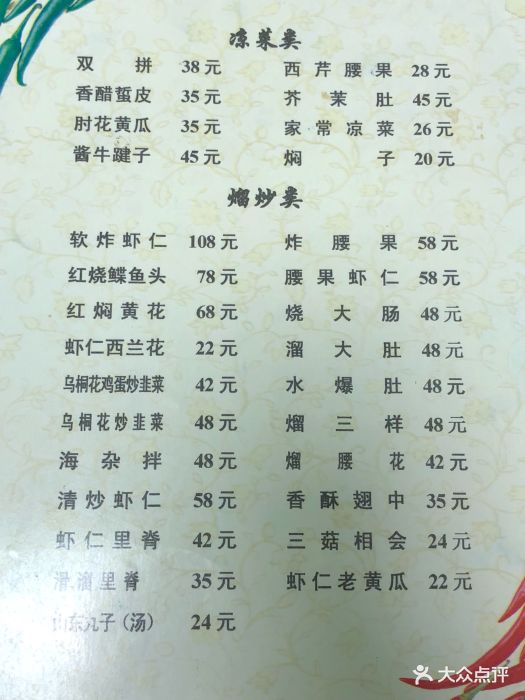 凉菜类
双拼 38元 西芹腰果 28元
香醋蜇皮 35元 芥茉肚 45元
肘花黄瓜 35元 家常凉菜 26元
酱牛踺子 45元 焖子 20元
熘炒类
软炸虾仁 108元 炸腰果 58元
红烧鲽鱼头 78元 腰果虾仁 58元
红焖黄花 68元 烧大肠 48元
虾仁西兰花 22元 溜大肚 48元
乌桐花鸡蛋炒韭菜 42元 水爆肚 48元
乌桐花炒韭菜 48元 熘三样 48元
海杂拌 48元 熘腰花 42元
清炒虾仁 58元 香酥翅中 35元
虾仁里脊 42元 三菇相会 24元
滑溜里脊 35元 虾仁老黄瓜 22元
山东丸子(汤) 24元
大众点评